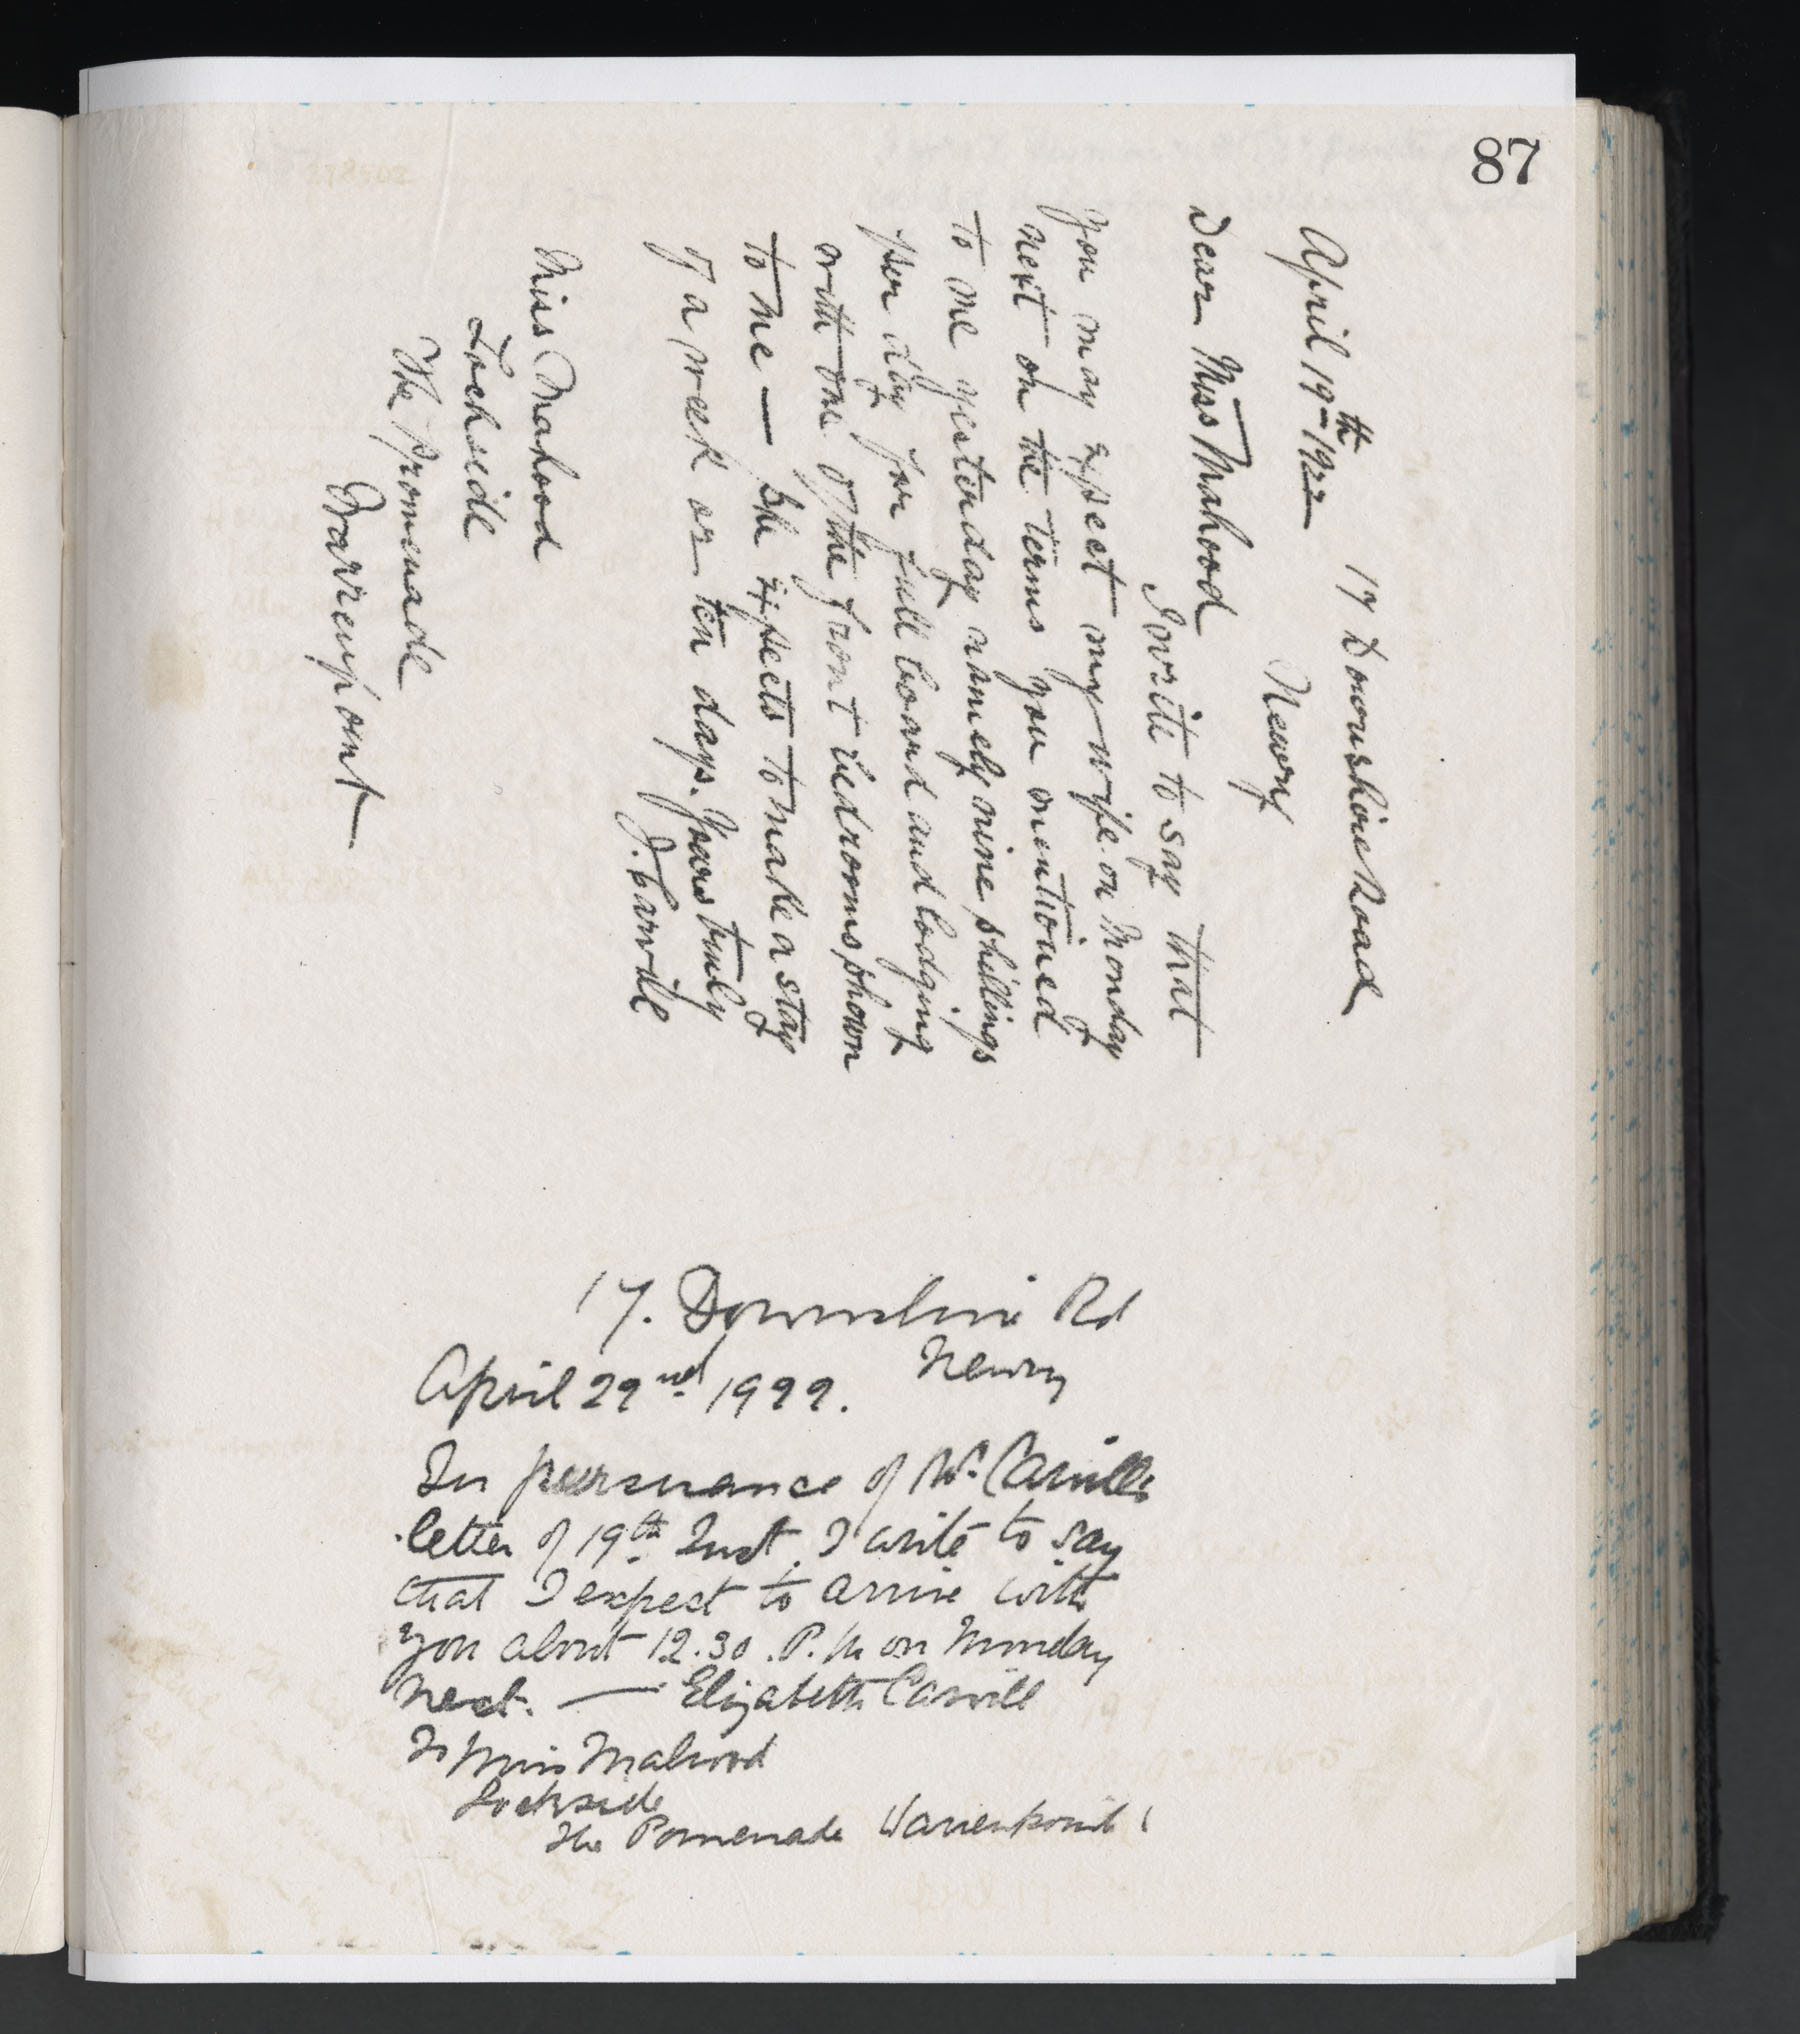 87
17 Downshire Road
Newry
April 19th 1922
Dear Miss Mahood
I write to say that
you may expect my wife on Monday
next on the terms you mentioned
to me yesterday namely nine shillings
per day for full board and lodging
with one of the front bedrooms shown
to me — She expects to make a stay
of a week or ten days. Yours truly
J. Carvill
Miss Mahood
Lochside
The Promenade
Warrenpoint
17. Downshire Rd
Newry
April 22nd 1922.
In pursuance of Mr. Carvills
letter of 19th Inst. I write to say
that I expect to arrive with
you about 12.30. P.M on Monday
next. — Elizabeth Carvill
To Miss Mahood
Lochside
The Promenade Warrenpoint